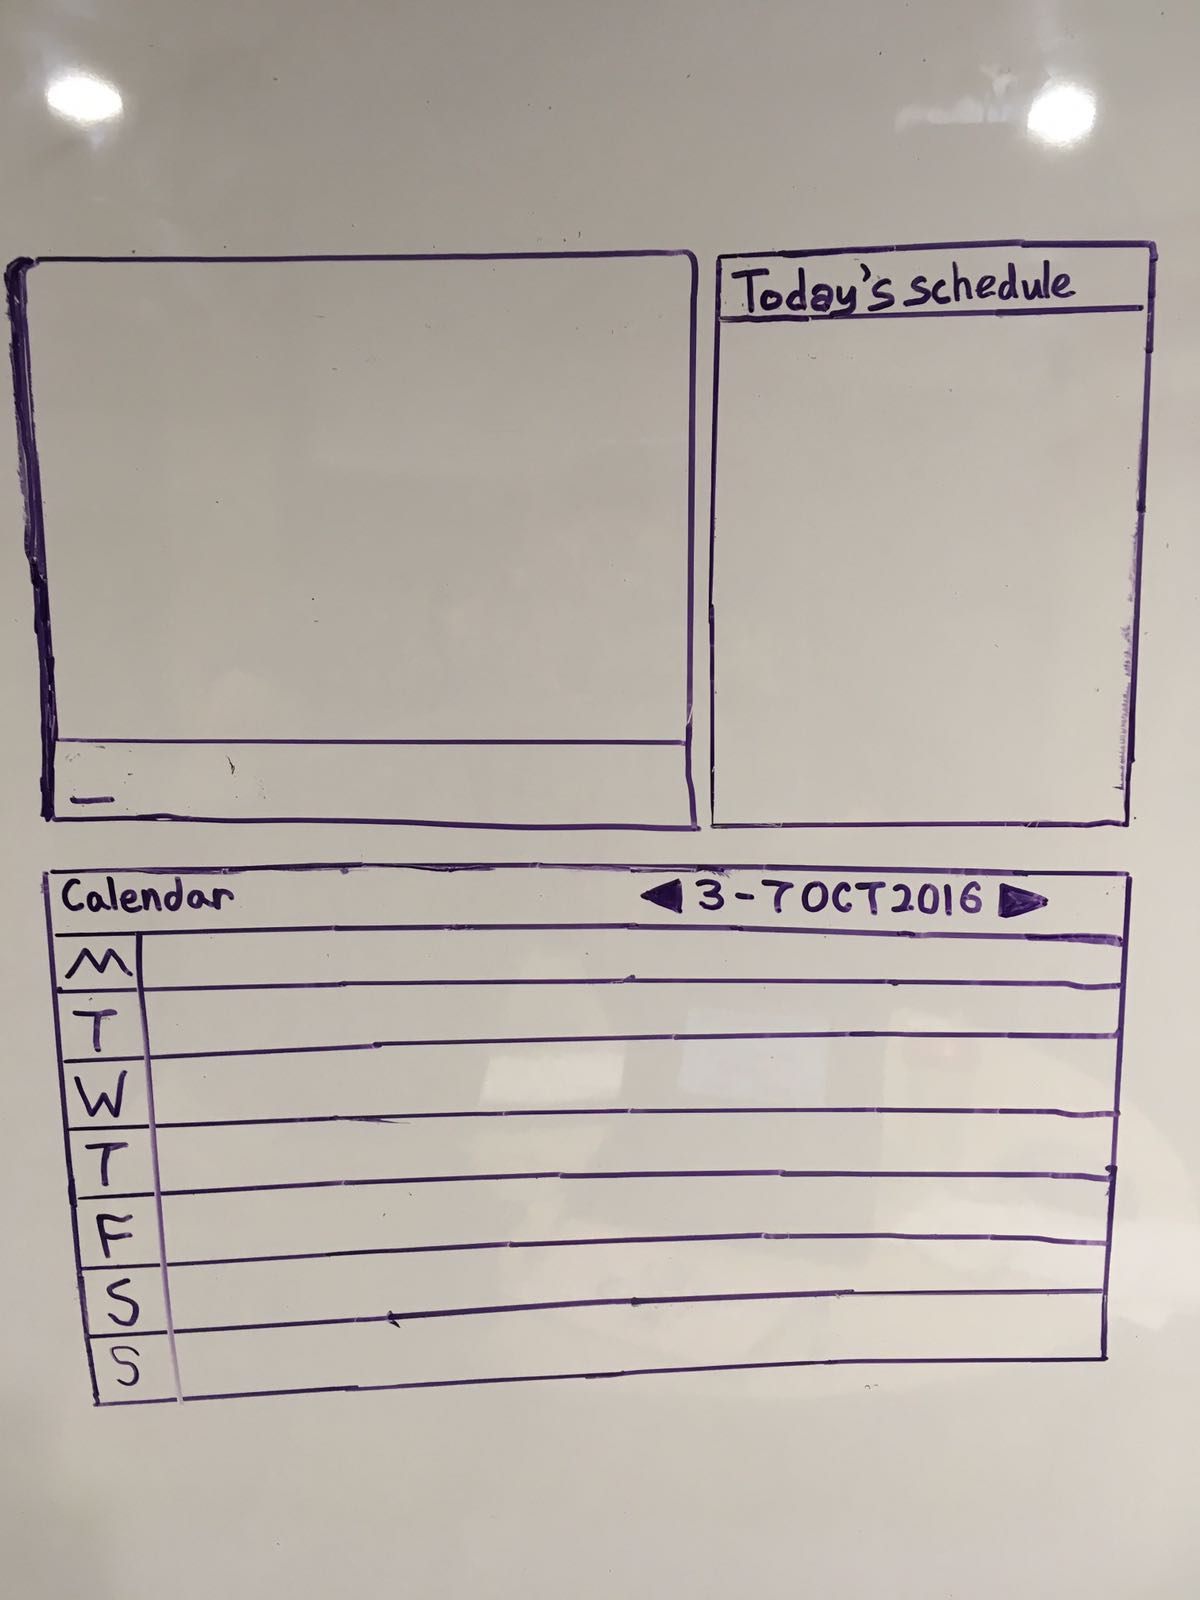 Today's schedule
Calendar ◀ 3-7 OCT 2016 ▶
M
T
W
T
F
S
S